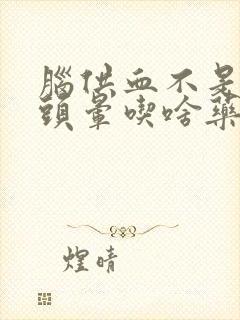 腦供血不足
頭暈喫啥藥
煌晴